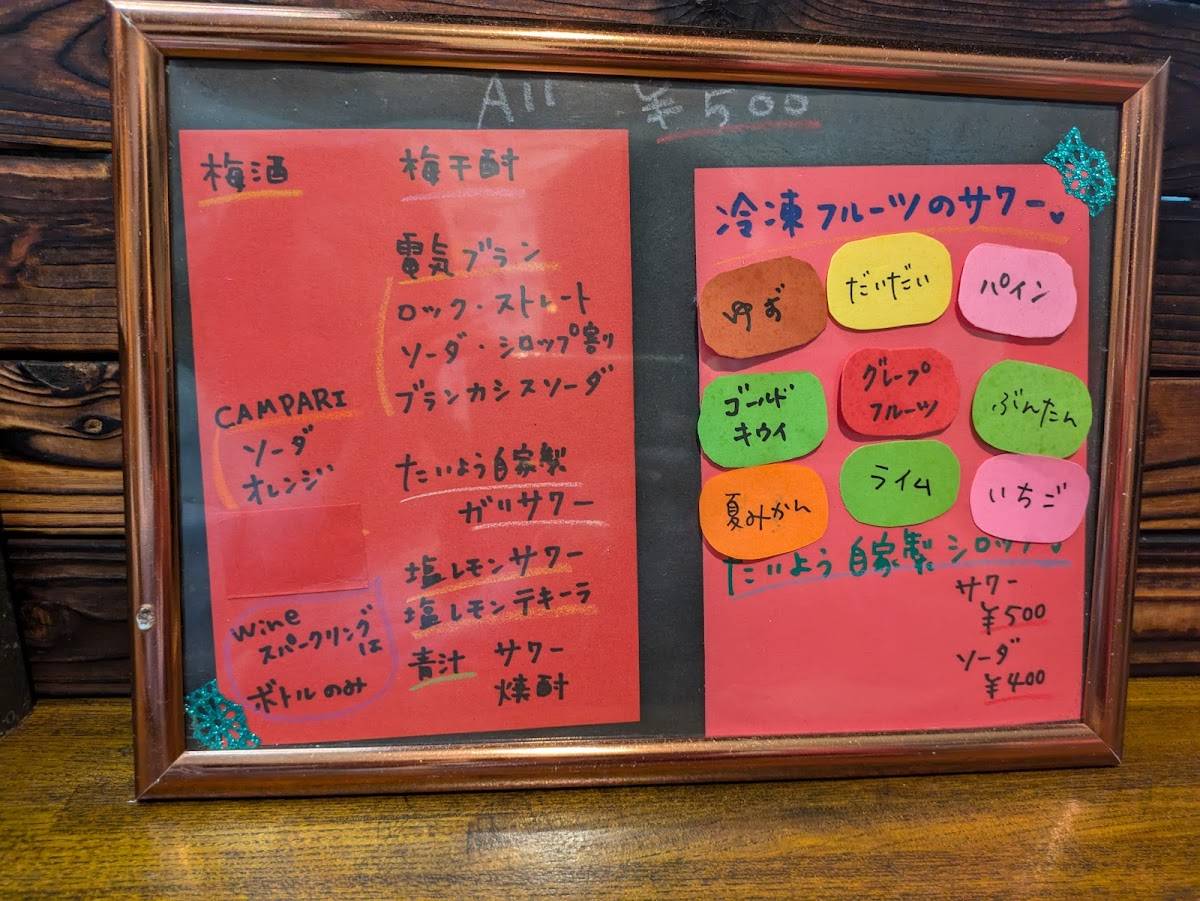 All ¥500
梅酒
梅干酎
電気ブラン
ロック・ストレート
ソーダ・シロップ割り
ブランカシスソーダ
CAMPARI
ソーダ
オレンジ
たいよう自家製
ガリサワー
塩レモンサワー
塩レモンテキーラ
wine
スパークリングは
ボトルのみ
青汁 サワー
焼酎
冷凍フルーツのサワー
ゆず
だいだい
パイン
ゴールド
キウイ
グレープ
フルーツ
ぶんたん
夏みかん
ライム
いちご
たいよう自家製シロップ
サワー
¥500
ソーダ
¥400